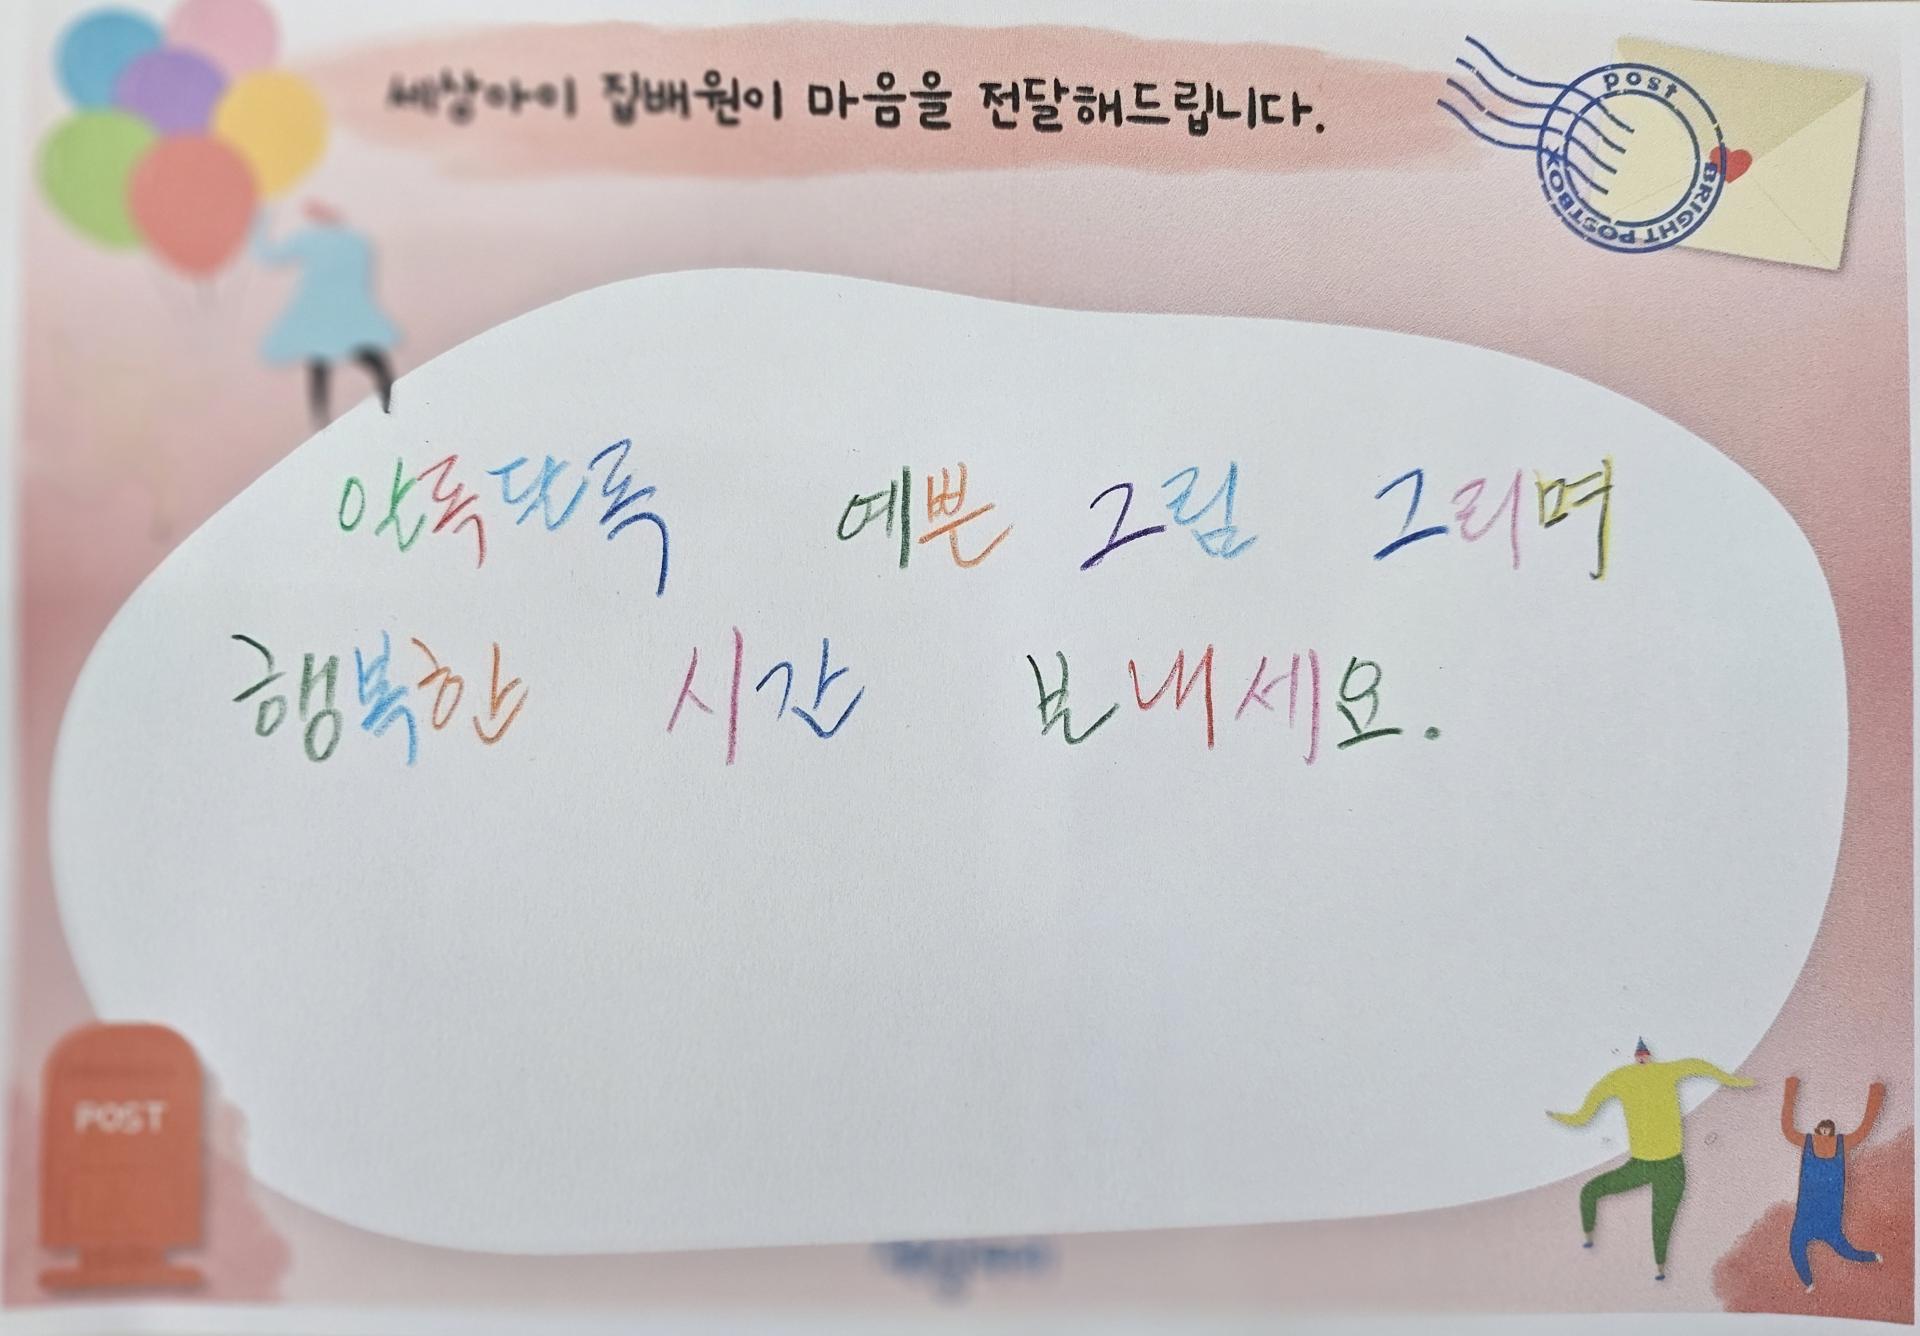 세상아이 집배원이 마음을 전달해드립니다.
post
BRIGHT POSTBOX
알록달록 예쁜 그림 그리며
행복한 시간 보내세요.
POST